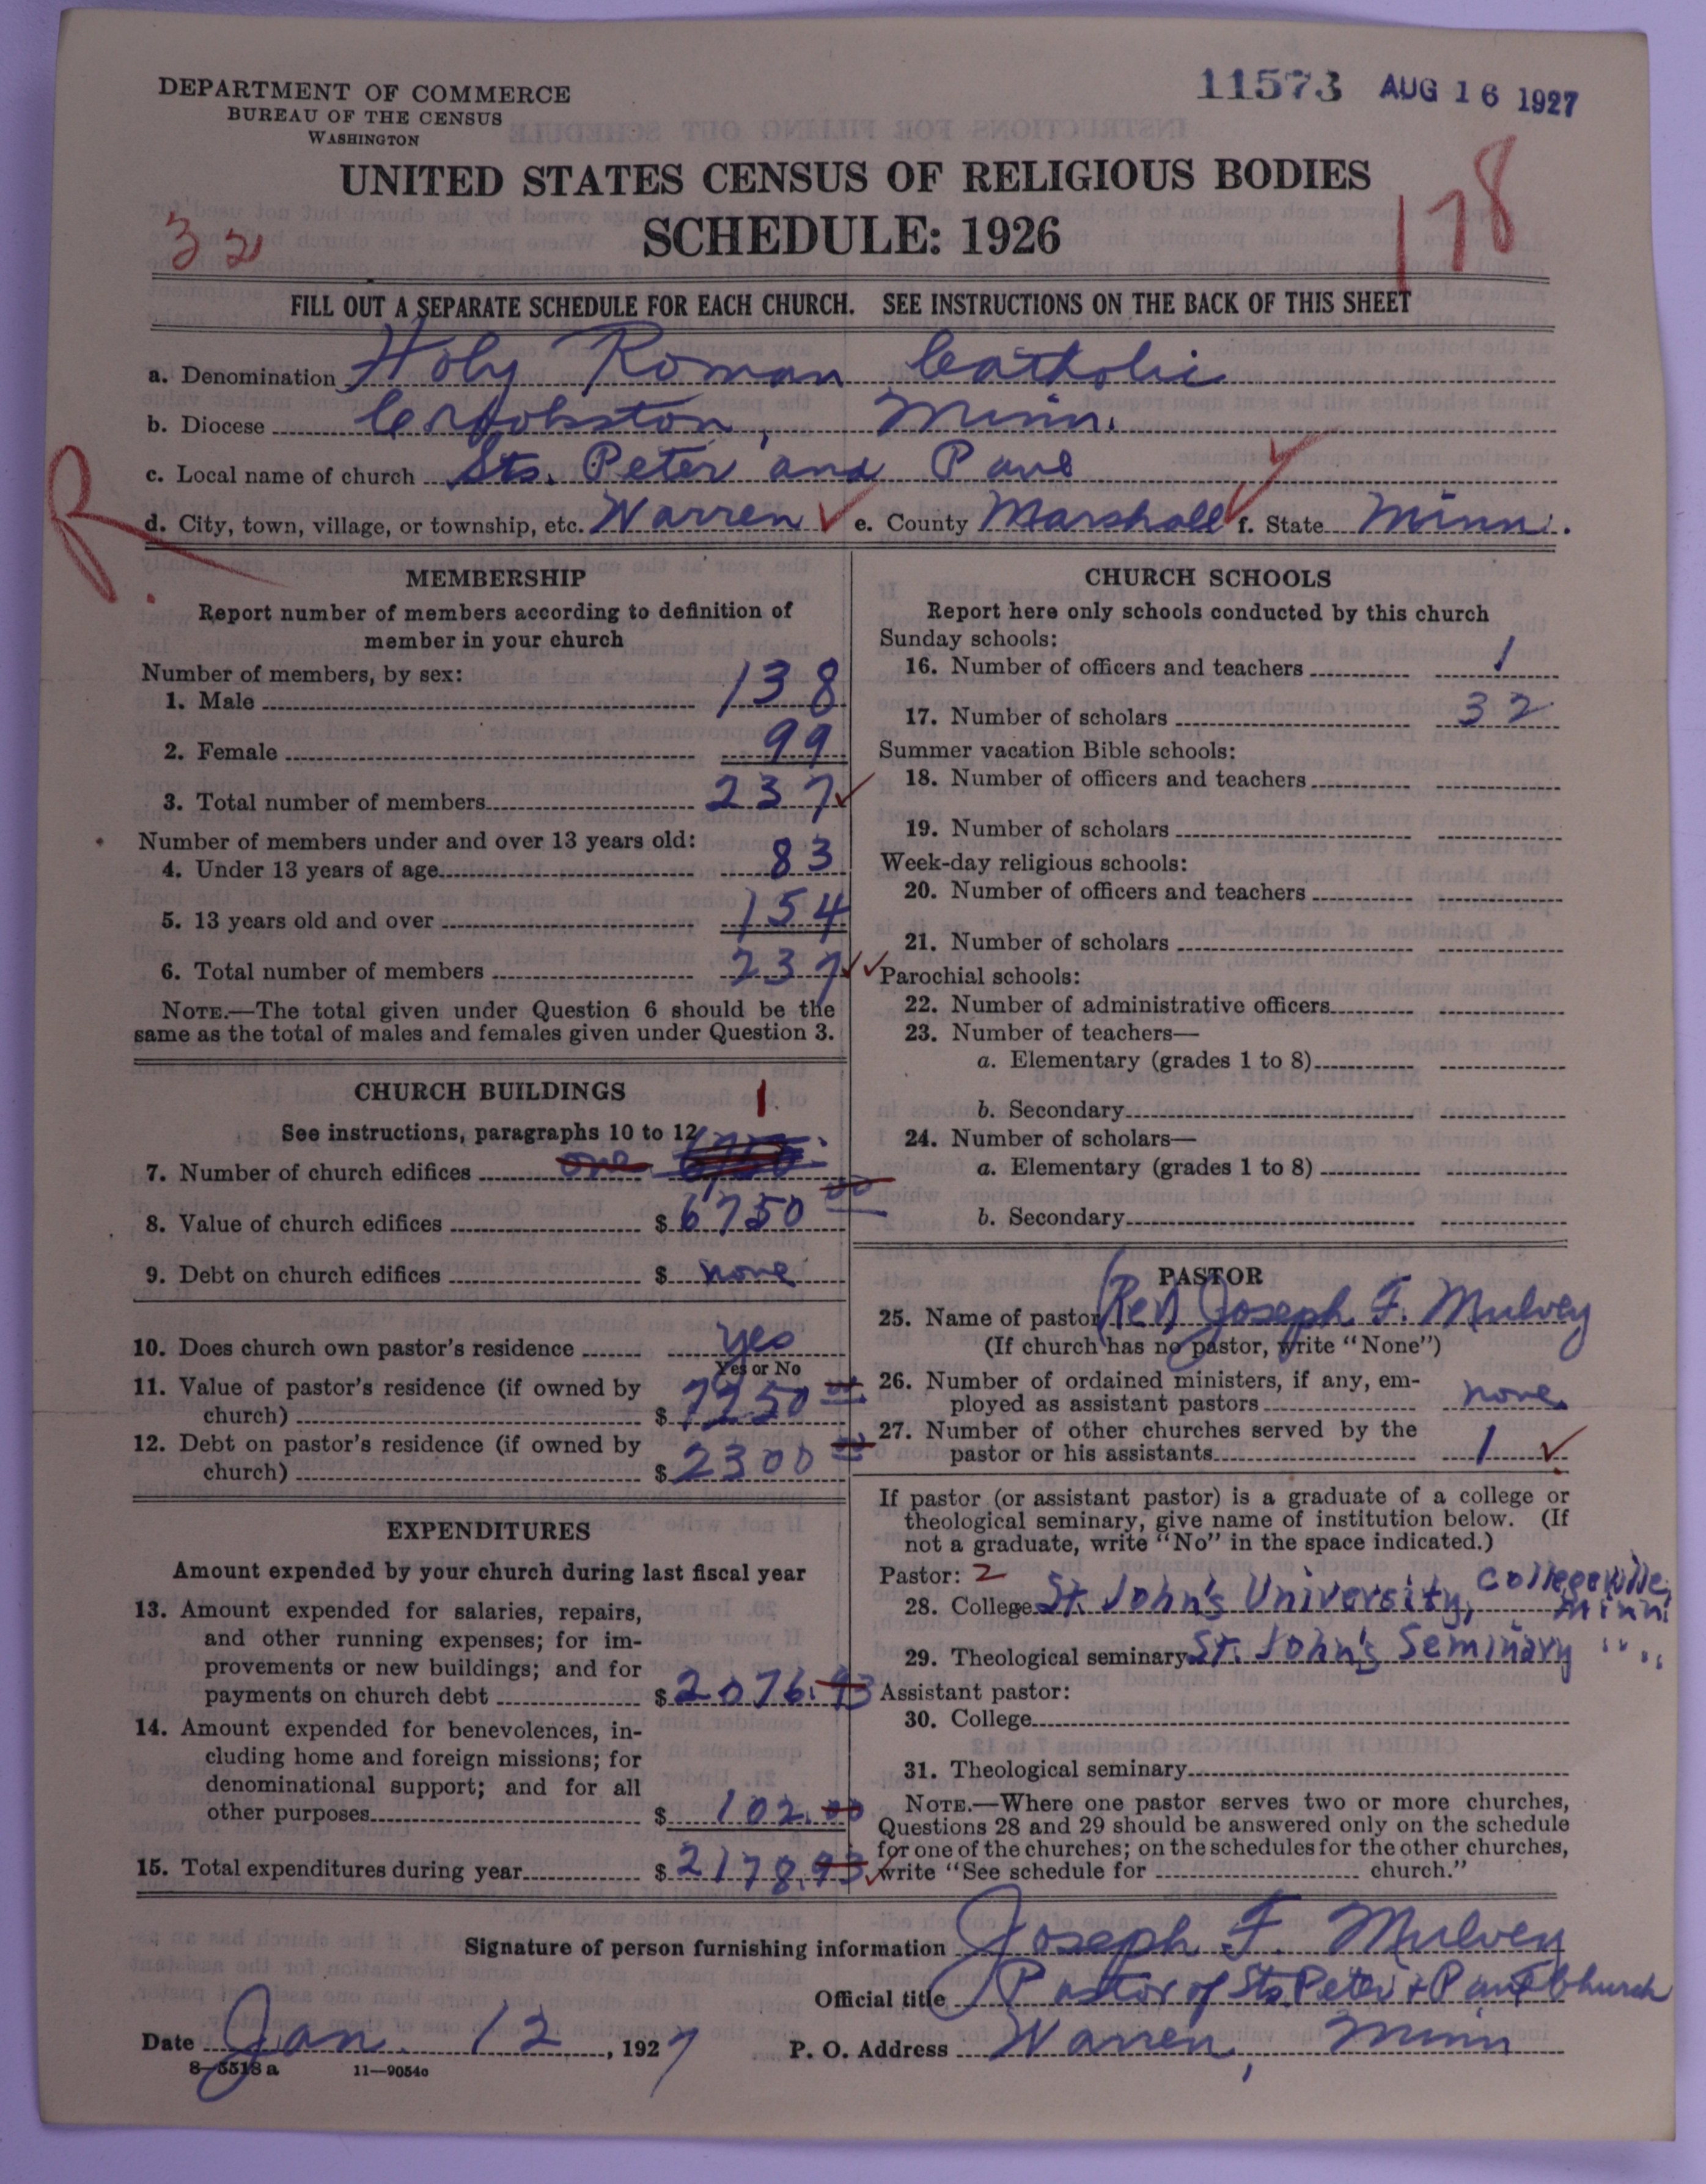 DEPARTMENT OF COMMERCE
BUREAU OF THE CENSUS
WASHINGTON
11573 AUG 16 1927
UNITED STATES CENSUS OF RELIGIOUS BODIES
SCHEDULE: 1926
32
178
FILL OUT A SEPARATE SCHEDULE FOR EACH CHURCH. SEE INSTRUCTIONS ON THE BACK OF THIS SHEET
a. Denomination Holy Roman Catholic
b. Diocese Crookston, Minn.
c. Local name of church Sts. Peter and Paul
R
d. City, town, village, or township, etc. Warren e. County Marshall f. State Minn.
MEMBERSHIP
Report number of members according to definition of
member in your church
Number of members, by sex:
1. Male 138
2. Female 99
3. Total number of members 237
Number of members under and over 13 years old:
4. Under 13 years of age 83
5. 13 years old and over 154
6. Total number of members 237
NOTE.—The total given under Question 6 should be the
same as the total of males and females given under Question 3.
CHURCH BUILDINGS
See instructions, paragraphs 10 to 12
1
7. Number of church edifices one
8. Value of church edifices $ 6750 00
9. Debt on church edifices $ none
10. Does church own pastor's residence yes
Yes or No
11. Value of pastor's residence (if owned by
church) $ 7750 00
12. Debt on pastor's residence (if owned by
church) $ 2300 00
EXPENDITURES
Amount expended by your church during last fiscal year
13. Amount expended for salaries, repairs,
and other running expenses; for im-
provements or new buildings; and for
payments on church debt $ 2076.93
14. Amount expended for benevolences, in-
cluding home and foreign missions; for
denominational support; and for all
other purposes $ 102.00
15. Total expenditures during year $ 2178.93
CHURCH SCHOOLS
Report here only schools conducted by this church
Sunday schools:
16. Number of officers and teachers 1
17. Number of scholars 32
Summer vacation Bible schools:
18. Number of officers and teachers
19. Number of scholars
Week-day religious schools:
20. Number of officers and teachers
21. Number of scholars
Parochial schools:
22. Number of administrative officers
23. Number of teachers—
a. Elementary (grades 1 to 8)
b. Secondary
24. Number of scholars—
a. Elementary (grades 1 to 8)
b. Secondary
PASTOR
25. Name of pastor (Rev) Joseph F. Mulvey
(If church has no pastor, write "None")
26. Number of ordained ministers, if any, em-
ployed as assistant pastors none
27. Number of other churches served by the
pastor or his assistants 1
If pastor (or assistant pastor) is a graduate of a college or
theological seminary, give name of institution below. (If
not a graduate, write "No" in the space indicated.)
Pastor: 2
28. College St. John's University, Collegeville, Minn.
29. Theological seminary St. John's Seminary " "
Assistant pastor:
30. College
31. Theological seminary
NOTE.—Where one pastor serves two or more churches,
Questions 28 and 29 should be answered only on the schedule
for one of the churches; on the schedules for the other churches,
write "See schedule for church."
Signature of person furnishing information Joseph F. Mulvey
Official title Pastor of Sts. Peter & Paul Church
Date Jan. 12, 1927 P. O. Address Warren, Minn
8—5518 a 11—9054c